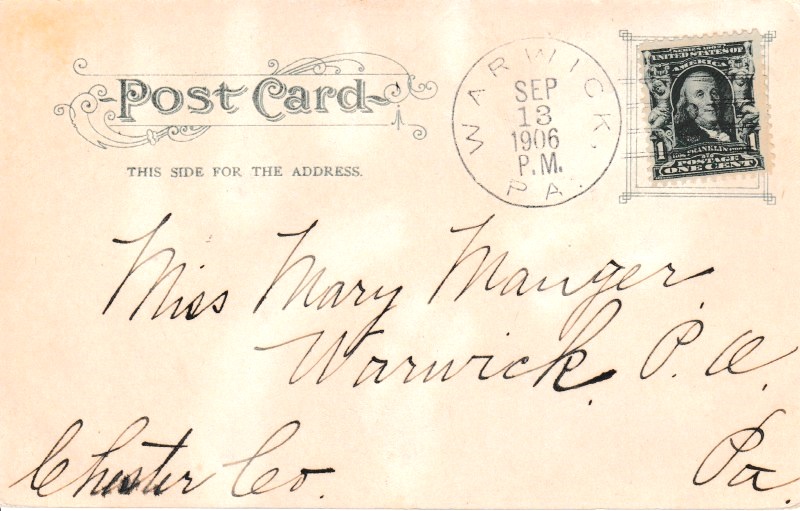 Post Card
THIS SIDE FOR THE ADDRESS.
WARWICK.
SEP
13
1906
P.M.
PA.
SERIES 1902
UNITED STATES OF
AMERICA
1 FRANKLIN 1
POSTAGE
ONE CENT
Miss Mary Manger.
Warwick. P. O.
Chester Co.
Pa